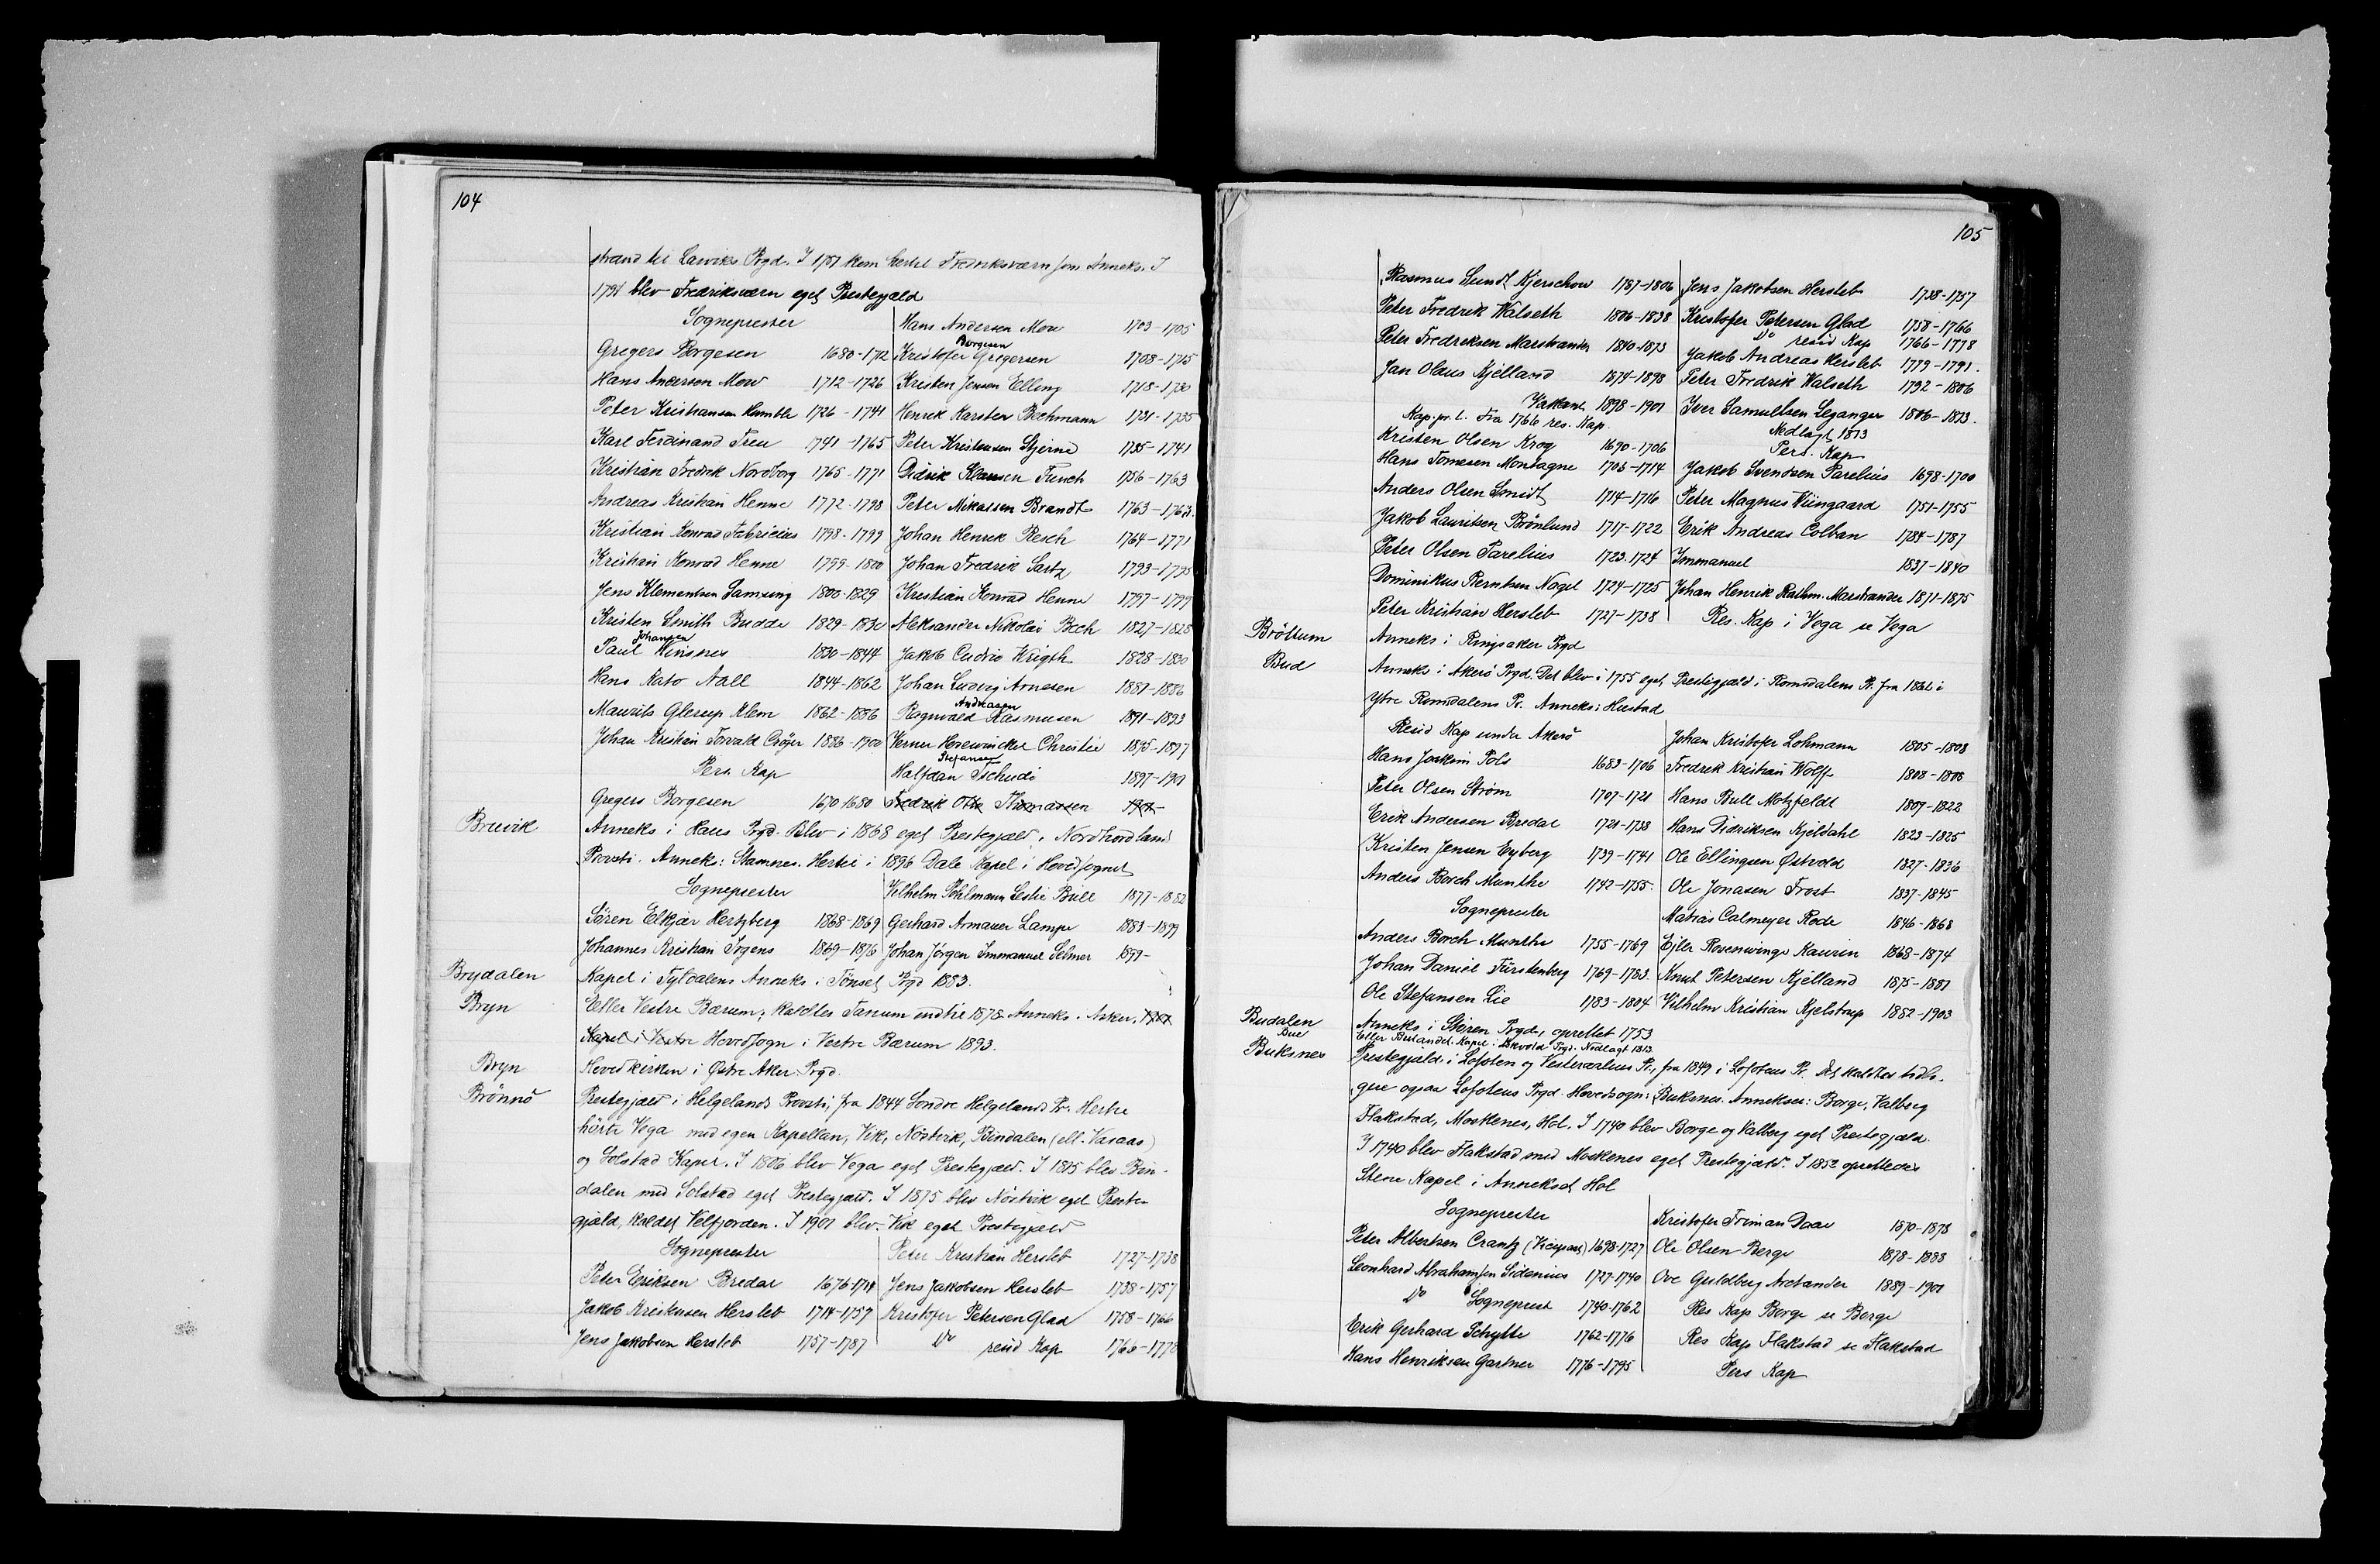 104
strand til Larviks Prgd. I 1751 kom hertil Fredriksværn som Anneks. I
1794 blev Fredriksværn eget Prestegjæld
Sogneprester
Gregers Borgesen 1680-1712
Hans Andersen Mow 1712-1726
Peter Kristiansen Humble 1726-1741
Karl Ferdinand Treu 1741-1765
Kristian Fredrik Nordborg 1765-1771
Andreas Kristian Henne 1772-1798
Kristian Konrad Fabricius 1798-1799
Kristian Konrad Henne 1799-1800
Jens Klementsen Lamsing 1800-1829
Kristen Smith Budde 1829-1830
Johansen
Paul Winsnes 1830-1844
Hans Kato Aall 1844-1862
Maurits Glerup Klem 1862-1886
Johan Kristian Torvald Crøger 1886-1900
Pers. Kap
Gregers Borgesen 1670-1680
Hans Andersen Mow 1703-1705
Borgesen
Kristofer Gregersen 1708-1715
Kristen Jensen Elling 1718-1730
Henrik Karsten Bachmann 1731-1735
Peter Kristensen Stjerne 1735-1741
Didrik Klausen Funch 1756-1763
Peter Mikalsen Brandt 1763-1763.
Johan Henrik Resch 1764-1771
Johan Fredrik Sartz 1793-1795
Kristian Konrad Henne 1797-1799
Aleksander Nikolai Bech 1827-1828
Jakob Cudrio Wrigth 1828-1830
Johan Ludvig Arnesen 1881-1886
Andreasen
Ragnvald Rasmusen 1891-1893
Verner Hosewinckel Christie 1895-1897
Stefansen
Halfdan Tschudi 1897-1901
Fredrik Otto Thomassen 1901-
Bruvik
Anneks i Haus Prgd. Blev i 1868 eget Prestegjæld i Nordhordland
Provsti. Anneks: Stamnes. Hertil i 1896 Dale Kapel i Hovedsognet
Sogneprester
Søren Elkjær Hertzberg 1868-1869
Johannes Kristian Irgens 1869-1876
Vilhelm Pohlmann Leslie Bull 1877-1882
Gerhard Armauer Lampe 1883-1899
Johan Jörgen Immanuel Selmer 1899-
Brydalen
Kapel i Tyldalens Anneks i Tönset Prgd 1883.
Bryn
Eller Vestre Bærum, kaldtes Tanum indtil 1878 Anneks. Asker.
Kapel i Vestre Hovedsogn i Vestre Bærum 1893.
Bryn
Hovedkirken i Østre Aker Prgd.
Brönnö
Prestegjæld i Helgelands Provsti, fra 1844 Søndre Helgelands Pr. Hertil
hörte Vega med egen Kapellan, Vik, Nöstvik, Bindalen (ell. Vasaas)
og Solstad Kapel. I 1806 blev Vega eget Prestegjæld. I 1815 blev Bin-
dalen med Solstad eget Prestegjæld. I 1875 blev Nöstvik eget Preste-
gjæld, kaldet Velfjorden. I 1901 blev Vik eget Prestegjæld
Sogneprester
Peter Eriksen Bredal 1676-1714
Jakob Kristensen Hersleb 1714-1757
Jens Jakobsen Hersleb 1757-1787
Peter Kristian Hersleb 1727-1738
Jens Jakobsen Hersleb 1738-1757
Kristofer Petersen Glad 1758-1766
Do resid Kap 1766-1778
105
Rasmus Lundt Kjerschow 1787-1806
Peter Fredrik Walseth 1806-1838
Peter Fredriksen Marstrander 1840-1873
Jan Olaus Kjelland 1874-1898
Vakant 1898-1901
Kap. pr. l. Fra 1766 res. Kap.
Kristen Olsen Krog 1690-1706
Hans Tomesen Montagne 1706-1714
Anders Olsen Smidt 1714-1716
Jakob Lauritsen Brönlund 1717-1722
Peter Olsen Parelius 1723-1724
Dominikus Berntsen Nagel 1724-1725
Peter Kristian Hersleb 1727-1738
Jens Jakobsen Hersleb 1738-1757
Kristofer Petersen Glad 1758-1766
Do resid Kap 1766-1778
Jakob Andreas Hersleb 1779-1791.
Peter Fredrik Walseth 1792-1806
Iver Samuelsen Leganger 1806-1813.
Nedlagt 1813
Pers. Kap
Jakob Svendsen Parelius 1698-1700
Peter Magnus Wiingaard 1751-1755
Erik Andreas Colban 1784-1787
Immanuel 1837-1840
Johan Henrik Rathm. Marstrander 1871-1875
Res. Kap i Vega se Vega
Bröttum
Anneks i Ringsaker Prgd
Bud
Anneks i Akerö Prgd. Det blev i 1755 eget Prestegjæld i Romsdalens Pr. fra 1862 i
Ytre Romsdalens Pr. Anneks: Hustad
Resid Kap under Akerö
Hans Joakim Pols 1683-1706
Peter Olsen Ström 1707-1721
Erik Andersen Bredal 1721-1738
Kristen Jensen Eyberg 1739-1741
Anders Borch Munthe 1742-1755.
Sogneprester
Anders Borch Munthe 1755-1769
Johan Daniel Fürstenberg 1769-1783.
Ole Stefansen Lie 1783-1804
Johan Kristofer Lohmann 1805-1808
Fredrik Kristian Wolff 1808-1808
Hans Bull Motzfeldt 1809-1822
Hans Didriksen Kjeldahl 1823-1825
Ole Ellingsen Østvold 1827-1836
Ole Jonasen Frost 1837-1845
Matias Calmeyer Rode 1846-1868
Ejler Rosenvinge Kaurin 1868-1874
Knut Petersen Kjelland 1875-1881
Vilhelm Kristian Kjelstrup 1882-1903
Budalen
Anneks i Stören Prgd., oprettet 1753
Bue
Eller Buslandet. Kapel i Askvold Prgd. Nedlagt 1813
Buksnes
Prestegjæld i Lofoten og Vesteraalens Pr., fra 1849 i Lofotens Pr. Det kaldtes tidli-
gere ogsaa Lofotens Prgd. Hovedsogn: Buksnes. Annekser: Borge, Valberg
Flakstad, Moskenes, Hol. I 1740 blev Borge og Valberg eget Prestegjæld.
I 1740 blev Flakstad med Moskenes eget Prestegjæld. I 1852 oprettedes
Stene Kapel i Annekset Hol
Sogneprester
Peter Albertsen Crantz (Vicepast) 1698-1727
Leonhard Abrahamsen Sidenius 1727-1740
Do Sogneprest 1740-1762
Erik Gerhard Schytte 1762-1776
Hans Henriksen Gartner 1776-1795
Kristofer Friman Daae 1870-1878
Ole Olsen Berge 1878-1888
Ove Guldberg Arctander 1889-1901
Res Kap Borge se Borge
Res Kap Flakstad se Flakstad
Pers Kap